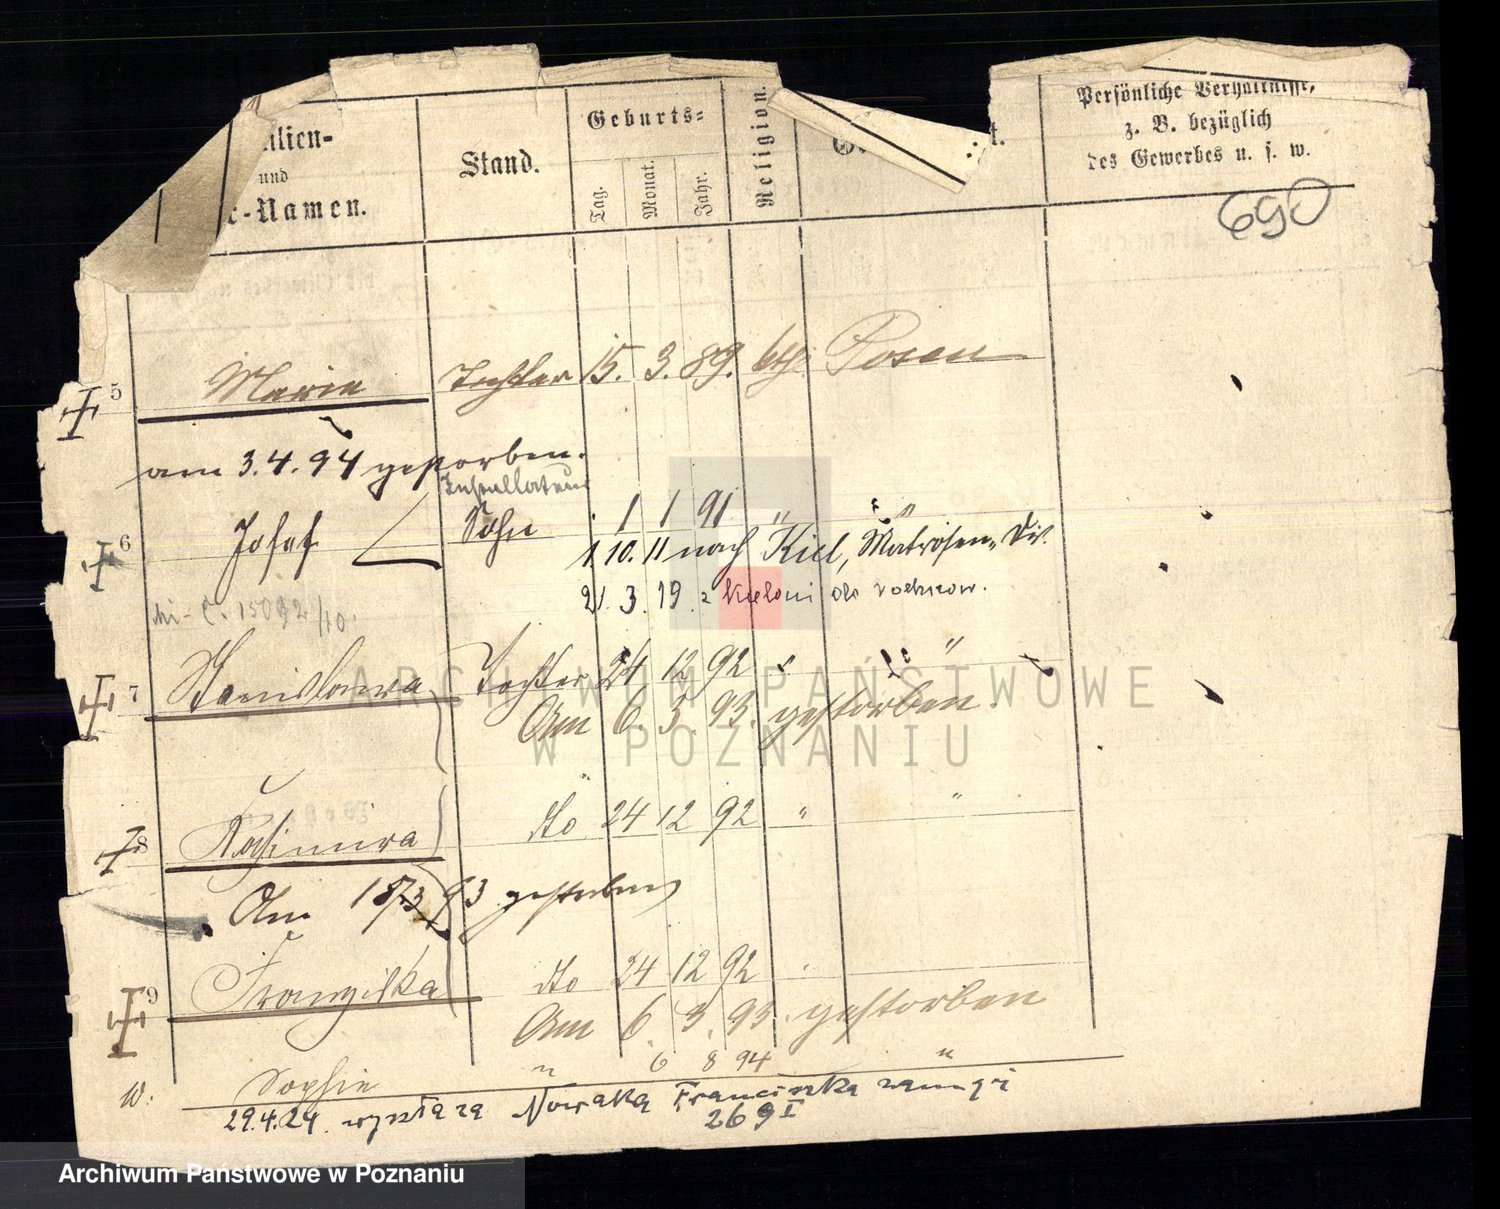 Geburts-
Persönliche Verhältnisse,
z. B. bezüglich
des Gewerbes u. s. w.
ilien-
und
e-Namen.
Stand.
Tag.
Monat.
Jahr.
Religion.
690
5 Marie Tochter 15. 3. 89. kth. Posen
am 3.4.94 gestorben.
Installateur
6 Josef Sohn 1 1 91 " " "
1.10.11 nach Kiel, Matrosen-Div.
21. 3. 19 z do rodziców.
15092/10.
7 Stanislawa Tochter 24 12 92 " " "
Am 6. 3. 93. gestorben
8 Kasimira dto 24 12 92 " "
Am 18/3 93 gestorben
9 Franziska dto 24 12 92 "
Am 6. 3. 93. gestorben
w. Sophie " 6 8 94 "
29.4.24. wyszła za Nowaka Franciszka
269 I
ARCHIWUM PAŃSTWOWE
W POZNANIU
Archiwum Państwowe w Poznaniu